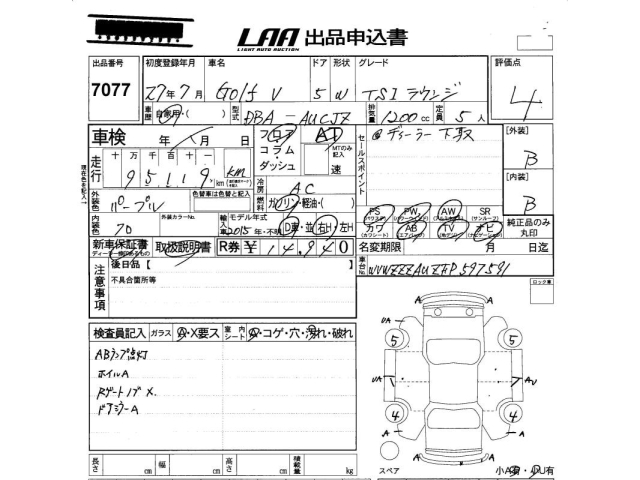 LAA 出品申込書
LIGHT AUTO AUCTION
出品番号 初度登録年月 車名 ドア 形状 グレード 評価点
7077 27年7月 Golf V 5 W TSI ラウンジ 4
車歴 自家用・( ) 型式 DBA-AUCJZ 排気量 1200cc 定員 5人
車検 年 月 日 フロア・コラム・ダッシュ AT MTのみ記入 速
セールスポイント ◎ディーラー下取
[外装] B
[内装] B
走行 十万千百十一 95119 km
冷房 AC
外装色 パープル 色替車は色替と記入
燃料 ガソリン・軽油・( )
内装色 70 外装カラーNo.
輸入車 モデル年式 2015年・不明 D車・並 右H・左H
PS PW AW SR
(サンルーフ)
カワ AB TV ナビ
(カワシート) (エアバッグ)
純正品のみ丸印
新車保証書 取扱説明書 R券 ¥14,940
名変期限 月 日迄
注意事項 後日品【 】
不具合箇所等
車台No. WVWZZZAUZFP597591
ロック車
検査員記入 ガラス A・X要ス 室内シート A・コゲ・穴・汚れ・破れ
ABランプ点灯
ホイルA
RゲートノブX
ドアミラーA
UA A
5 5
UA 7 AU
4 4
A A A A
長さ cm 幅 cm 高さ cm 積載量 kg
スペア
小A有・小U有